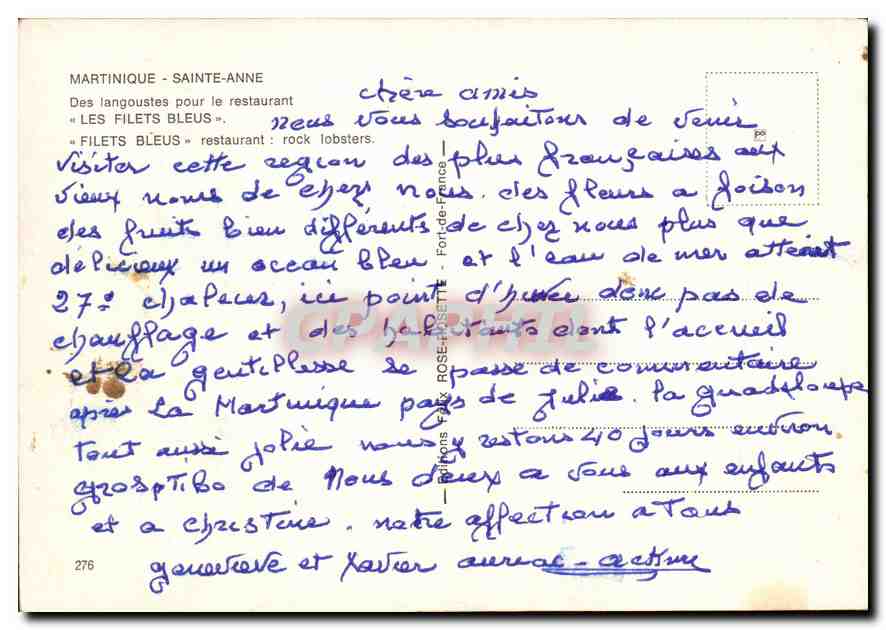 MARTINIQUE - SAINTE-ANNE
Des langoustes pour le restaurant
« LES FILETS BLEUS ».
« FILETS BLEUS » restaurant : rock lobsters.
chère amis
nous vous souhaitons de venir
visiter cette region des plus françaises aux
vieux noms de chez nous. des fleurs a foison
des fruits bien différents de chez nous plus que
délicieux un ocean bleu et l'eau de mer atteint
27° chaleur, ici point d'hiver donc pas de
chauffage et des habitants dont l'accueil
et la gentillesse se passe de commentaire
après La Martinique pays de Julie. la guadeloupe
tout aussi jolie nous y restons 40 jours environ
gros ptibo de Nous deux a vous aux enfants
et a christine. notre affection a Tous
genevieve et Xavier
276
Editions Félix ROSE-ROSETTE - Fort-de-France
CPARPHIL